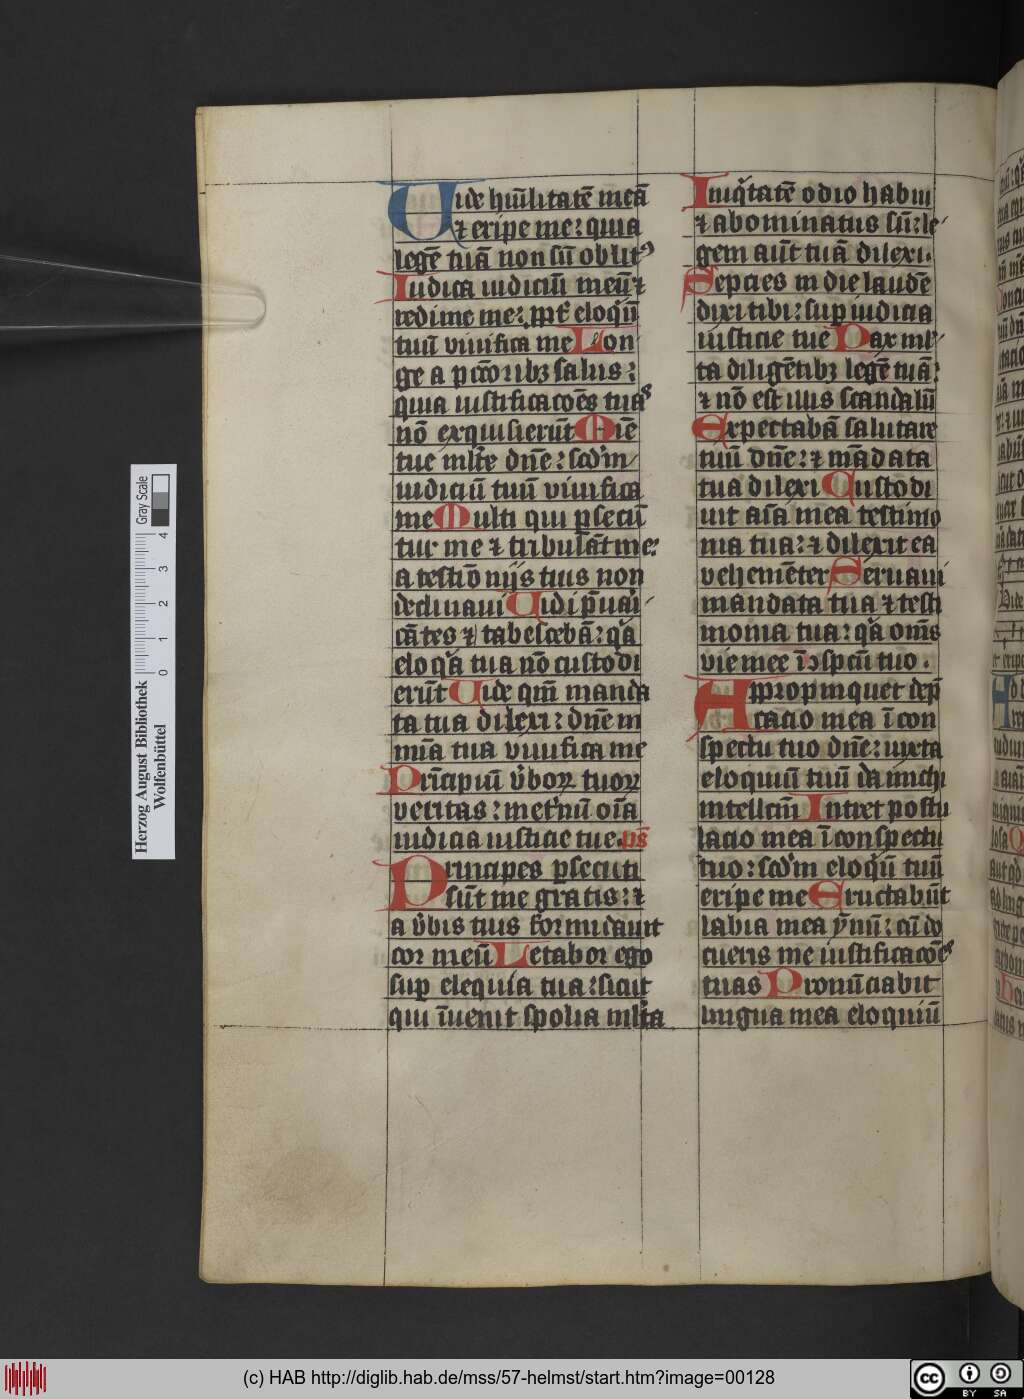 Vide hūılitatē meā
⁊ eripe me: quia
legē tuā non sū oblitꝰ
Iudica iudiciū meū ⁊
redime me: ꝓpt̄ eloq̄ū
tuū viuifica me Lon
ge a pccōribꝫ salus:
quia iustificacōes tuas
nō exquisierūt Mie
tue ml̄te dn̄e: scd̄m
iudiciū tuū viuifica
me Multi qui ꝑsecū
tur me ⁊ tribulāt me:
a testiōnijs tuis non
declinaui Uidi p̄uari
cātes ⁊ tabescebā: q̄a
eloq̄a tua nō custodi
erūt Uide qm̄ manda
ta tua dilexi: dn̄e in
mīa tua viuifica me
Prīcipiū v̄boꝝ tuoꝝ
veritas: inet̄nū oīa
iudicia iusticie tue. ps̄
Principes ꝑsecuti
sūt me gratis: ⁊
a v̄bis tuis formidauit
cor meū Letabor ego
suꝑ eloquia tua: sicut
qui īuenit spolia ml̄ta
Iniq̄tatē odio habui
⁊ abominatus sū: le
gem aūt tuā dilexi.
Sepcies in die laudē
dixi tibi: suꝑ iudicia
iusticie tue Pax ml̄
ta diligētibꝫ legē tuā:
⁊ nō est illis scandalū
Expectabā salutare
tuū dn̄e: ⁊ mādata
tua dilexi Custodi
uit aīa mea testimo
nia tua: ⁊ dilexit ea
vehemēter Seruaui
mandata tua ⁊ testi
monia tua: q̄a om̄s
vie mee ī ↄspc̄u tuo.
Appropinquet dep̄
cacio mea ī con
spectu tuo dn̄e: iuxta
eloquiū tuū da michi
intellcm̄ Intret postu
lacio mea ī conspectu
tuo: scd̄m eloq̄ū tuū
eripe me Eructabūt
labia mea ymnū: cū do
cueris me iustificacōes
tuas Pronūciabit
lingua mea eloquiū
Gray Scale
0 1 2 3 4
Herzog August Bibliothek
Wolfenbüttel
(c) HAB http://diglib.hab.de/mss/57-helmst/start.htm?image=00128
cc BY SA